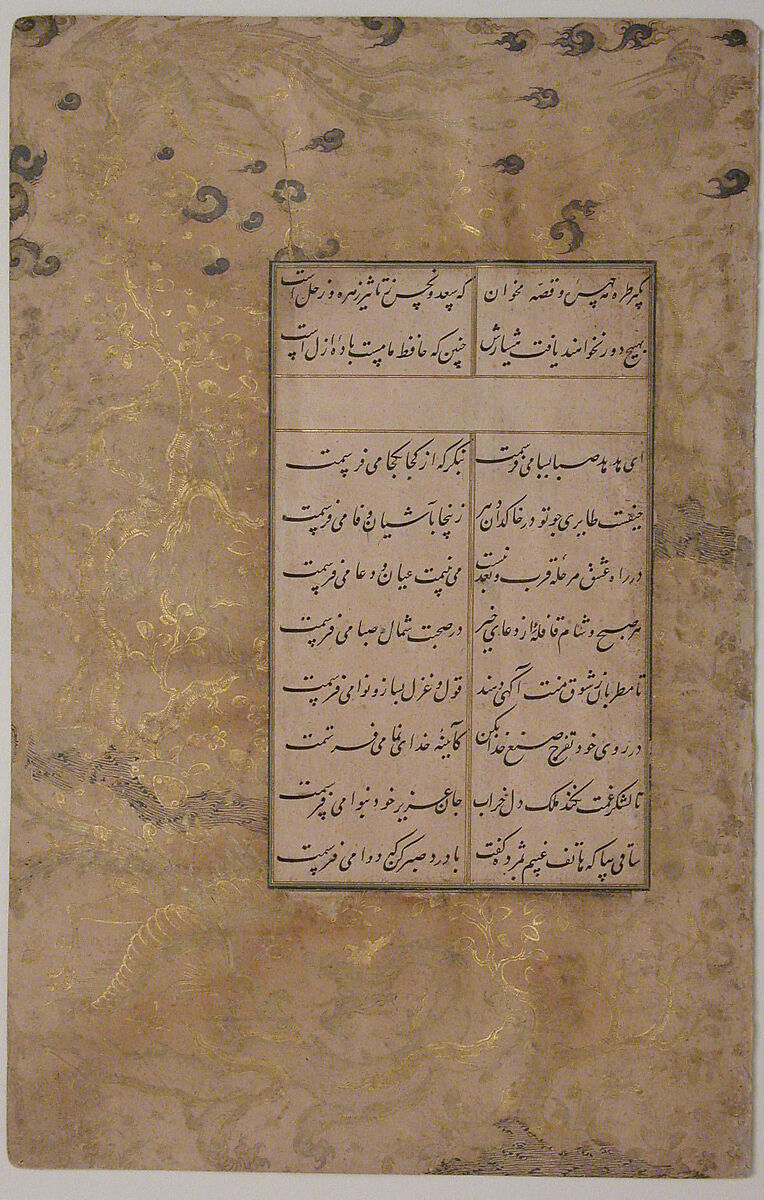 بگیر طره مه چهرهٔ و قصه مخوان که سعد و نحس ز تاثیر زهره و زحل است
بهیچ دور نخواهند یافت هشیارش چنین که حافظ ما مست بادهٔ ازل است
ای هدهد صبا بسبا می فرستمت بنگر که از کجا بکجا می فرستمت
حیفست طایری چو تو در خاکدان دهر زینجا بآشیان وفا می فرستمت
در راه عشق مرحلهٔ قرب و بعد نیست می بینمت عیان و دعا می فرستمت
هر صبح و شام قافلهٔ از دعای خیر در صحبت شمال و صبا می فرستمت
تا مطربان ز شوق منت آگهی دهند قول و غزل بساز و نوا می فرستمت
در روی خود تفرج صنع خدا بکن کآینهٔ خدای نما می فرستمت
تا لشکر غمت نکند ملک دل خراب جان عزیز خود بنوا می فرستمت
ساقی بیا که هاتف غیبم بمژده گفت با درد صبر کن که دوا می فرستمت